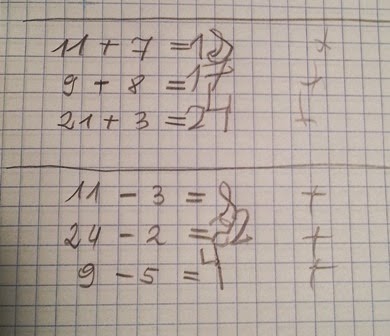 11 + 7 = 18 +
9 + 8 = 17 +
21 + 3 = 24 +
11 - 3 = 8 +
24 - 2 = 22 +
9 - 5 = 4 +